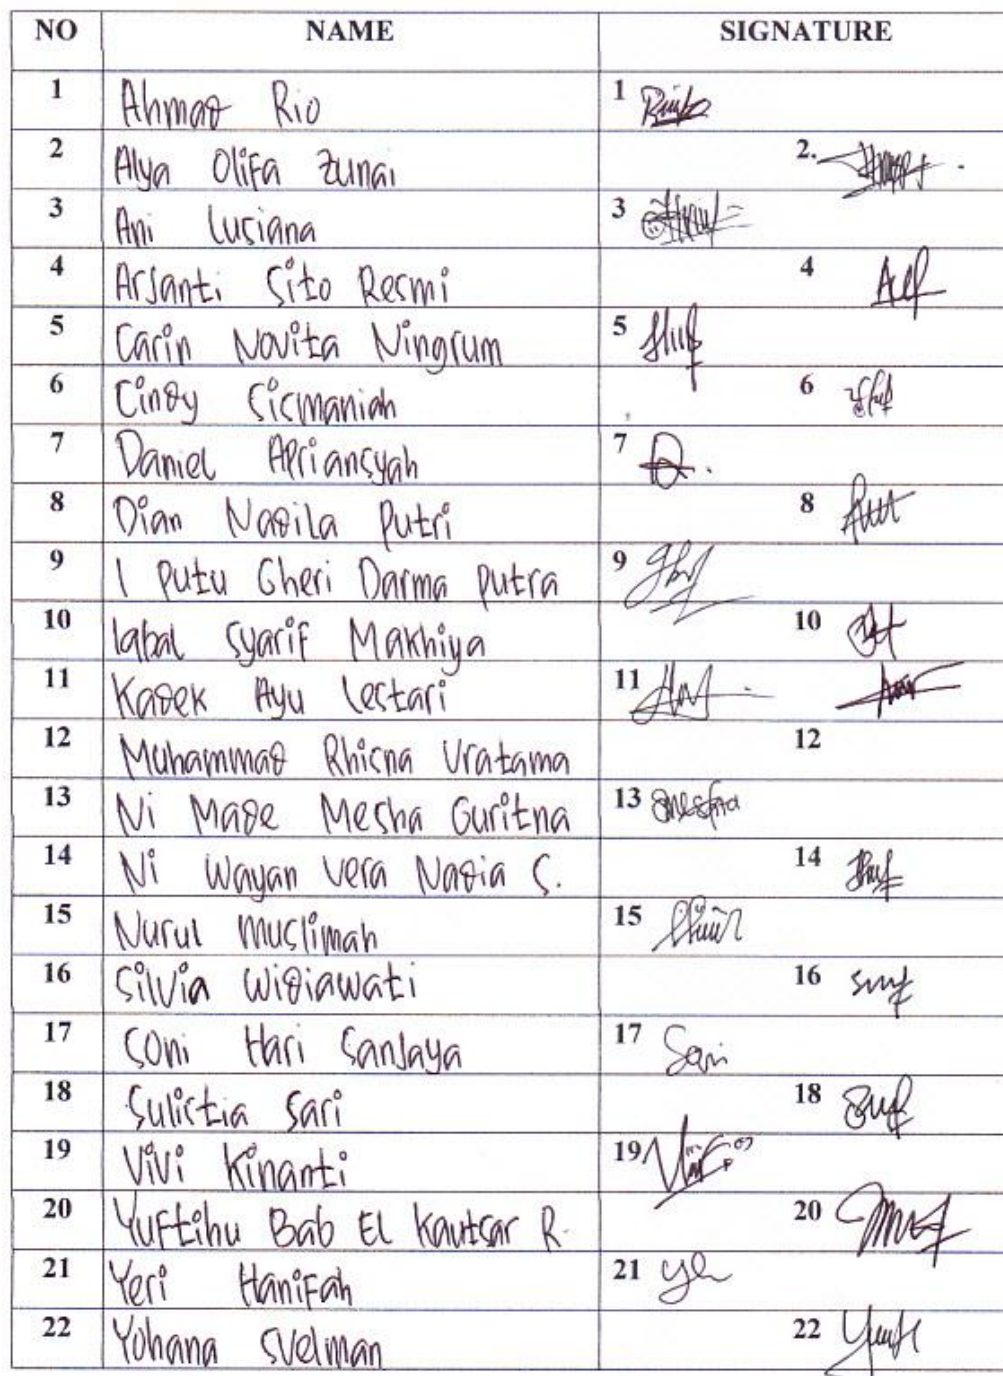 NO NAME SIGNATURE
1 Ahmad Rio 1
2 Alya Olifa Zunai 2.
3 Ani Lusiana 3
4 Arjanti Sito Resmi 4
5 Carin Novita Ningrum 5
6 Cindy Sismaniah 6
7 Daniel Apriansyah 7
8 Dian Nadila Putri 8
9 I Putu Gheri Darma Putra 9
10 Iqbal Syarif Makhiya 10
11 Kadek Ayu Lestari 11
12 Muhammad Rhisna Vratama 12
13 Ni Made Mesha Guritna 13
14 Ni Wayan Vera Nadia S. 14
15 Nurul Muslimah 15
16 Silvia Widiawati 16
17 Soni Hari Sanjaya 17 Soni
18 Sulistia Sari 18
19 Vivi Kinanti 19
20 Yuftihu Bab El Kautsar R. 20
21 Yeri Hanifah 21
22 Yohana Svelman 22